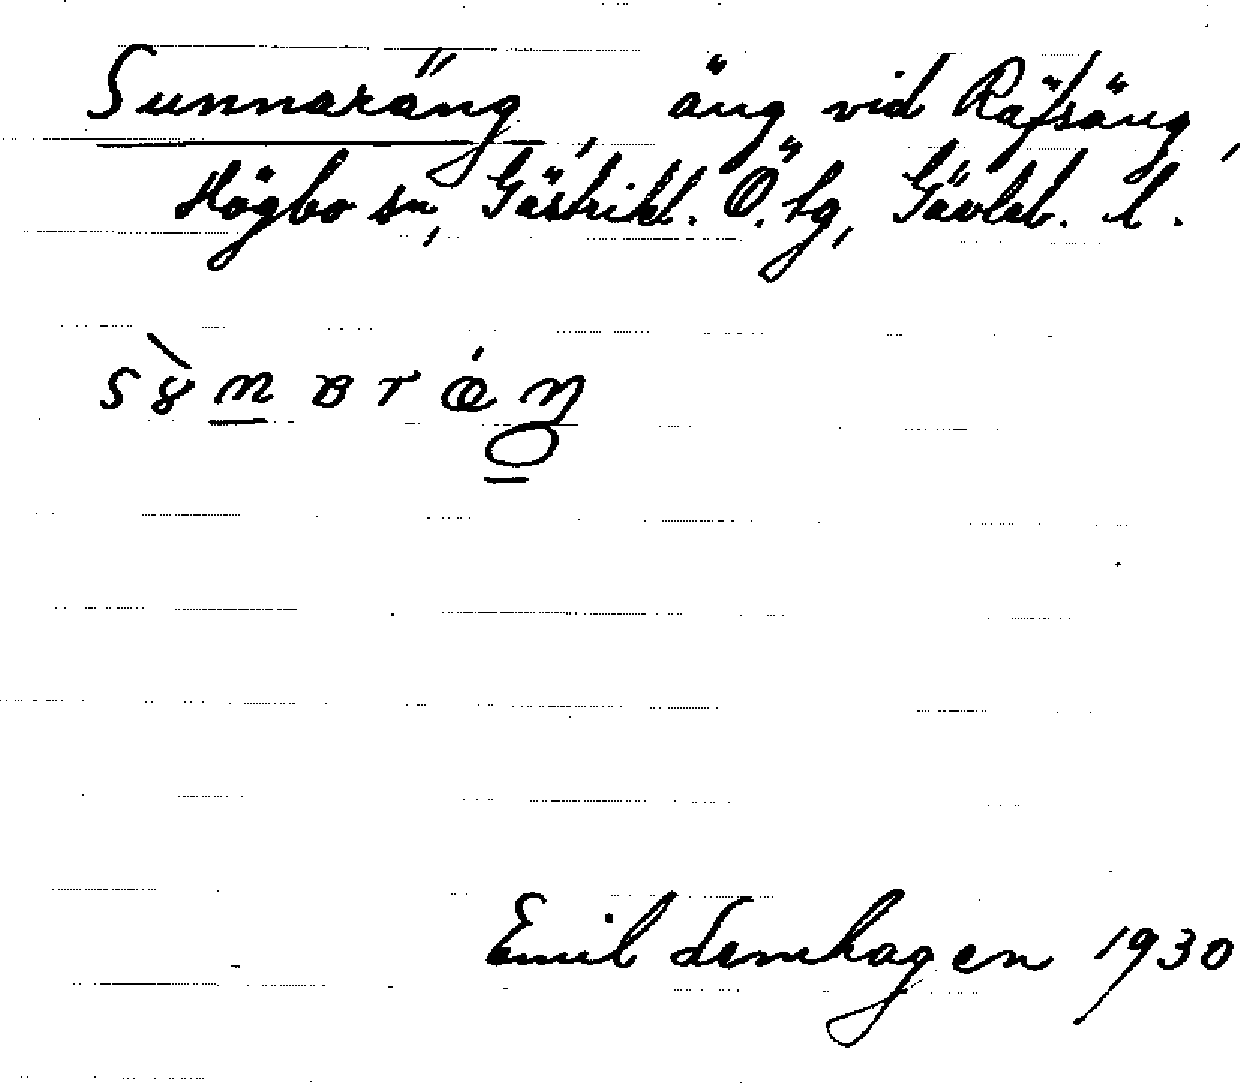 Sunnaräng, äng vid Räfsäng,
Högbo sn, Gästrikl. Ö. tg, Gävleb. l.
Emil Lenhagen 1930